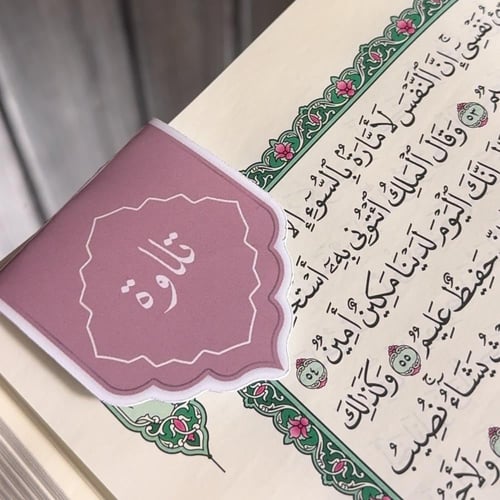 تلاوة
نَفْسِىٓ إِنَّ ٱلنَّفْسَ لَأَمَّارَةٌۢ بِٱلسُّوٓءِ إِلَّا
٥٣ وَقَالَ ٱلْمَلِكُ ٱئْتُونِى بِهِۦٓ أَسْتَخ
إِنَّكَ ٱلْيَوْمَ لَدَيْنَا مَكِينٌ أَمِينٌ ٥٤
حَفِيظٌ عَلِيمٌ ٥٥ وَكَذَٰلِكَ
يَشَآءُ نُصِيبُ